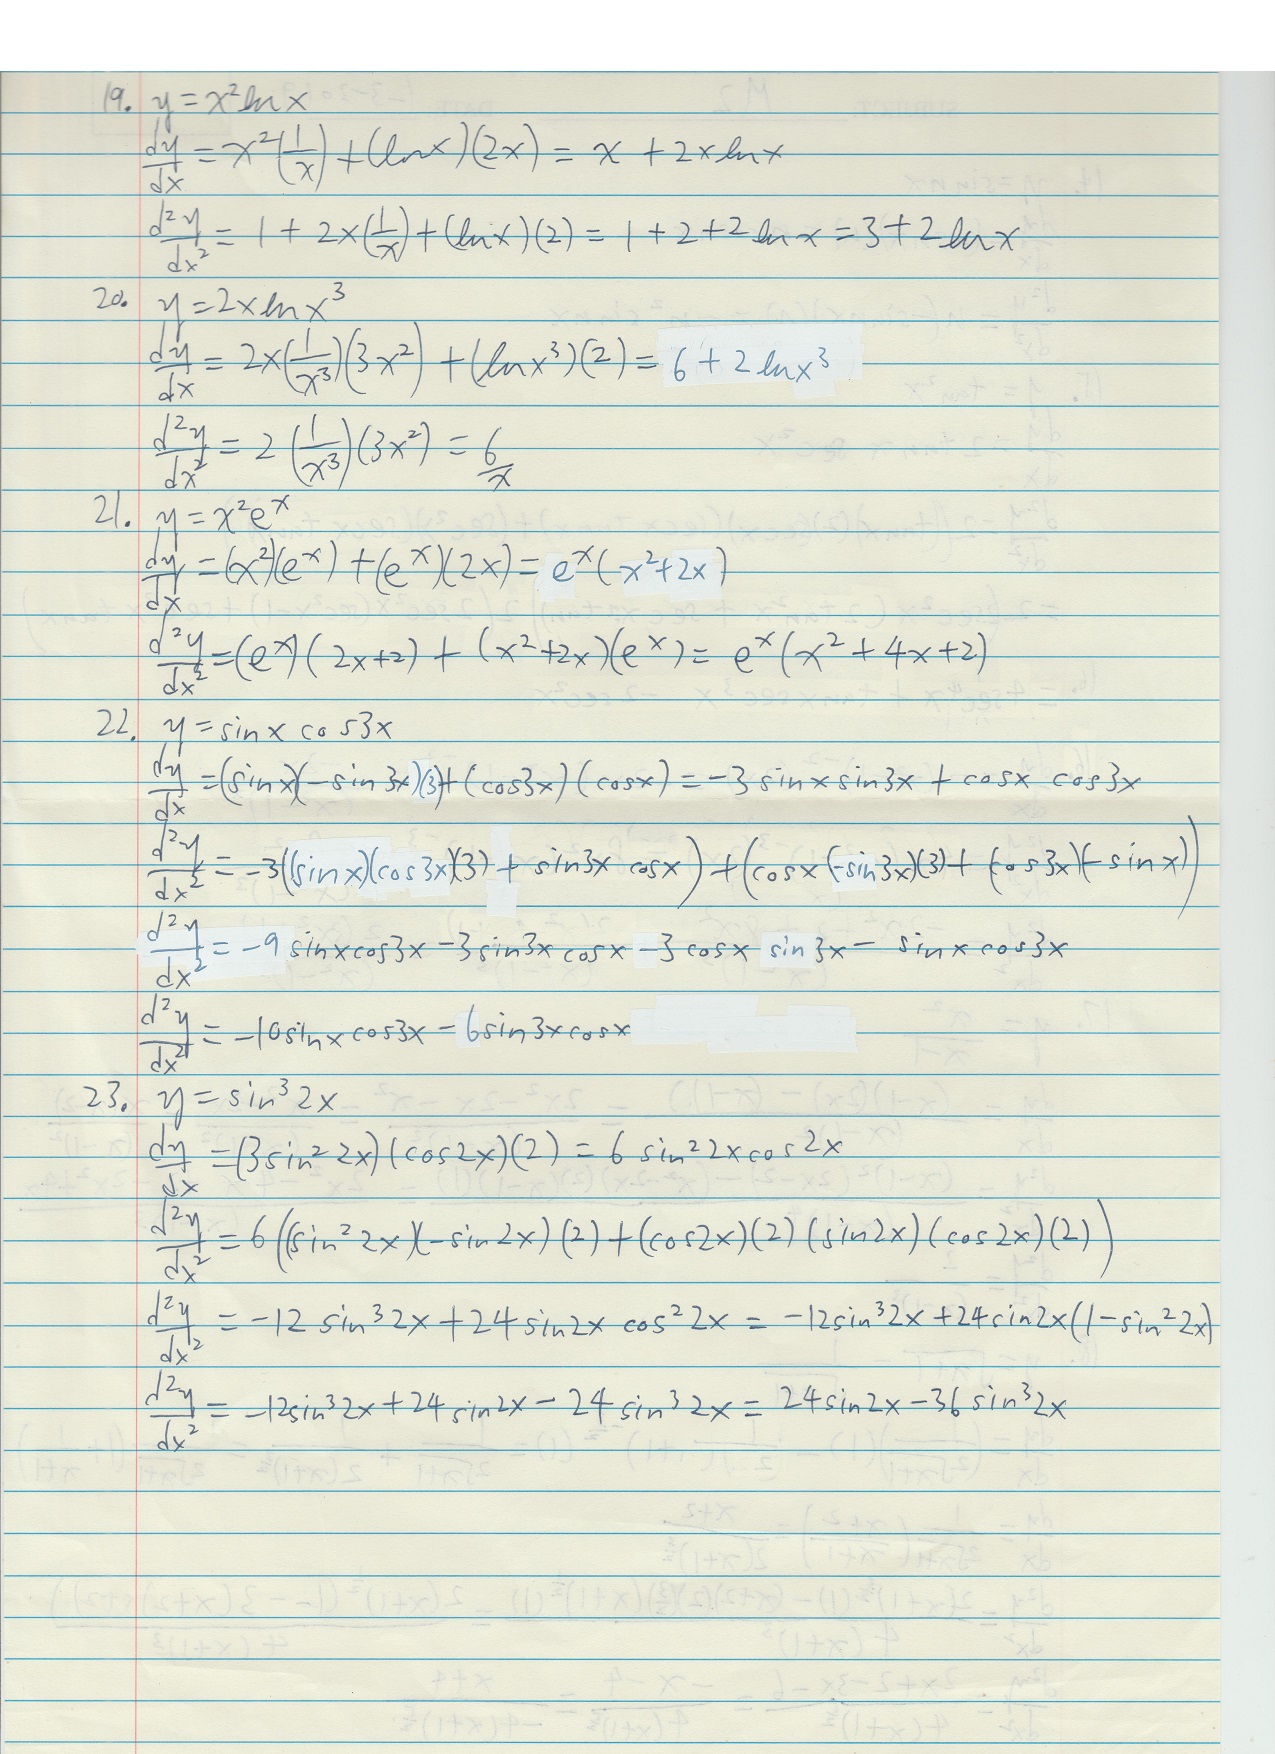 19. y = x² ln x
dy/dx = x²(1/x) + (ln x)(2x) = x + 2x ln x
d²y/dx² = 1 + 2x(1/x) + (ln x)(2) = 1 + 2 + 2 ln x = 3 + 2 ln x
20. y = 2x ln x³
dy/dx = 2x(1/x³)(3x²) + (ln x³)(2) = 6 + 2 ln x³
d²y/dx² = 2(1/x³)(3x²) = 6/x
21. y = x²eˣ
dy/dx = (x²)(eˣ) + (eˣ)(2x) = eˣ(x²+2x)
d²y/dx² = (eˣ)(2x+2) + (x²+2x)(eˣ) = eˣ(x²+4x+2)
22. y = sin x cos3x
dy/dx = (sin x)(-sin 3x)(3) + (cos3x)(cosx) = -3 sin x sin3x + cosx cos3x
d²y/dx² = -3((sin x)(cos3x)(3) + sin3x cosx) + (cosx(-sin3x)(3) + (cos3x)(-sin x))
d²y/dx² = -9 sinxcos3x - 3sin3x cosx - 3 cosx sin3x - sinx cos3x
d²y/dx² = -10sinx cos3x - 6sin3xcosx
23. y = sin³ 2x
dy/dx = (3sin² 2x)(cos2x)(2) = 6 sin² 2x cos 2x
d²y/dx² = 6((sin² 2x)(-sin 2x)(2) + (cos2x)(2)(sin2x)(cos2x)(2))
d²y/dx² = -12 sin³ 2x + 24 sin2x cos² 2x = -12sin³ 2x + 24sin2x(1-sin² 2x)
d²y/dx² = -12sin³ 2x + 24 sin2x - 24 sin³ 2x = 24sin2x - 36 sin³ 2x